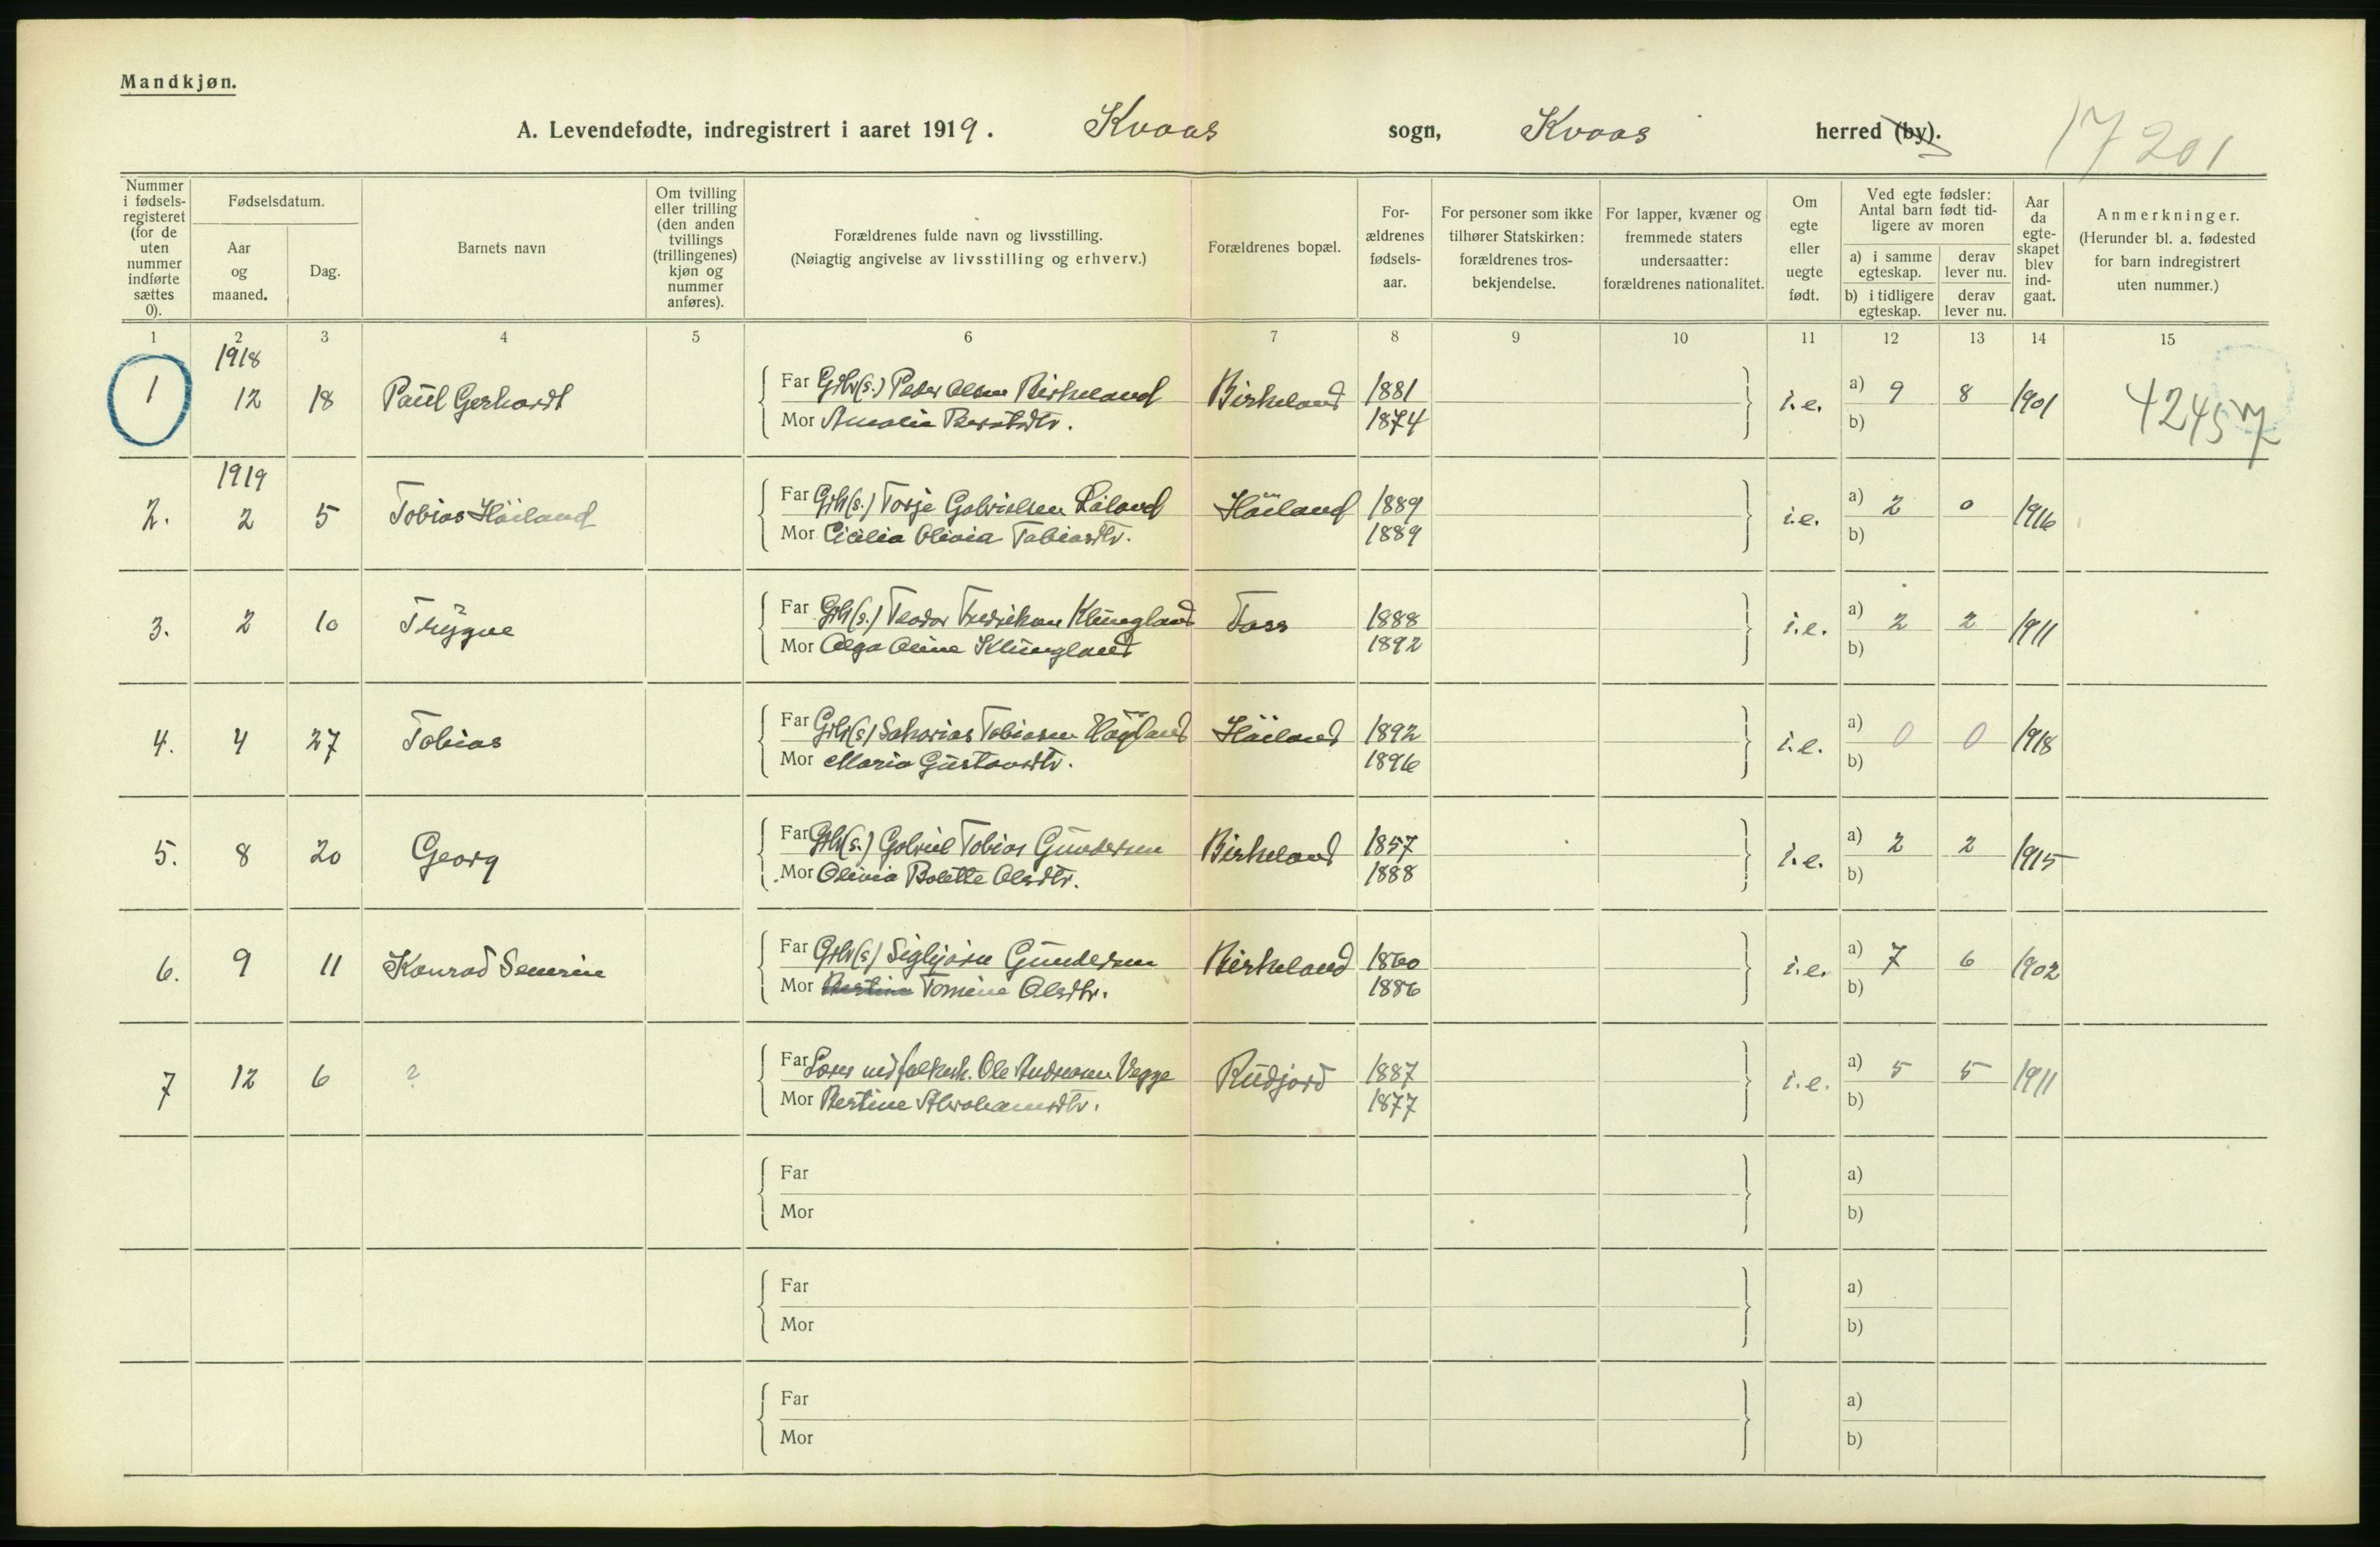 Mandkjøn.
A. Levendefødte, indregistrert i aaret 1919. Kvaas sogn, Kvaas herred (by).
17201
Nummer i fødsels-registeret (for de uten nummer indførte sættes 0).
Fødselsdatum.
Aar og maaned.
Dag.
Barnets navn
Om tvilling eller trilling (den anden tvillings (trillingenes) kjøn og nummer anføres).
Forældrenes fulde navn og livsstilling.
(Nøiagtig angivelse av livsstilling og erhverv.)
Forældrenes bopæl.
For-ældrenes fødsels-aar.
For personer som ikke tilhører Statskirken: forældrenes tros-bekjendelse.
For lapper, kvæner og fremmede staters undersaatter: forældrenes nationalitet.
Om egte eller uegte født.
Ved egte fødsler: Antal barn født tid-ligere av moren
a) i samme egteskap.
derav lever nu.
b) i tidligere egteskap.
derav lever nu.
Aar da egte-skapet blev ind-gaat.
Anmerkninger.
(Herunder bl. a. fødested for barn indregistrert uten nummer.)
1 2 3 4 5 6 7 8 9 10 11 12 13 14 15
1918
1 12 18 Paul Gerhardt Far Grbr(s.) Peder Olsen Birkeland Birkeland 1881 i.e. a) 9 8 1901 42457
Mor Amalia Berntsdtr. 1874 b)
1919
2. 2 5 Tobias Höiland Far Grbr(s.) Torje Gabrielsen Höiland 1889 i.e. a) 2 0 1916
Mor Cicilia Olivia Tobiasdtr. 1889 b)
3. 2 10 Trygve Far Grbr(s.) Teodor Fredriksen Klungland Foss 1888 i.e. a) 2 2 1911
Mor Olga Oline Klungland 1892 b)
4. 4 27 Tobias Far Grbr(s) Sakarias Tobiasen Höiland 1892 i.e. a) 0 0 1918
Mor Maria Gustavsdtr. 1896 b)
5. 8 20 Georg Far Grbr(s.) Gabriel Tobias Gundersen Birkeland 1857 i.e. a) 2 2 1915
Mor Olivia Bolette Olsdtr. 1888 b)
6. 9 11 Konrad Severin Far Grbr(s) Sigbjørn Gundersen Birkeland 1860 i.e. a) 7 6 1902
Mor Bertine Tomine Olsdtr. 1886 b)
7 12 6 ? Far Lærer ved folkesk. Ole Andreasen Vegge Rudjord 1887 i.e. a) 5 5 1911
Mor Bertine Abrahamsdtr. 1877 b)
Far a)
Mor b)
Far a)
Mor b)
Far a)
Mor b)